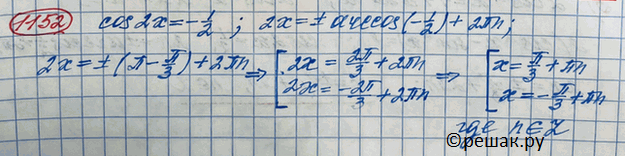 1152 cos2x = -1/2 ; 2x = ± arccos(-1/2) + 2πn;
2x = ±(π - π/3) + 2πn ⇒ [ 2x = 2π/3 + 2πn ⇒ [ x = π/3 + πn
2x = -2π/3 + 2πn x = -π/3 + πn
где n ∈ Z
©решак.ру